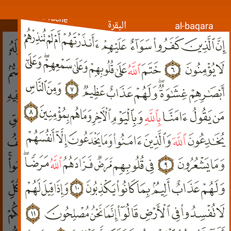 البقرة
al-baqara
إِنَّ ٱلَّذِينَ كَفَرُوا۟ سَوَآءٌ عَلَيْهِمْ ءَأَنذَرْتَهُمْ أَمْ لَمْ تُنذِرْهُمْ
لَا يُؤْمِنُونَ ٦ خَتَمَ ٱللَّهُ عَلَىٰ قُلُوبِهِمْ وَعَلَىٰ سَمْعِهِمْ وَعَلَىٰٓ
أَبْصَٰرِهِمْ غِشَٰوَةٌ وَلَهُمْ عَذَابٌ عَظِيمٌ ٧ وَمِنَ ٱلنَّاسِ
مَن يَقُولُ ءَامَنَّا بِٱللَّهِ وَبِٱلْيَوْمِ ٱلْءَاخِرِ وَمَا هُم بِمُؤْمِنِينَ ٨
يُخَٰدِعُونَ ٱللَّهَ وَٱلَّذِينَ ءَامَنُوا۟ وَمَا يَخْدَعُونَ إِلَّآ أَنفُسَهُمْ
وَمَا يَشْعُرُونَ ٩ فِى قُلُوبِهِم مَّرَضٌ فَزَادَهُمُ ٱللَّهُ مَرَضًا
وَلَهُمْ عَذَابٌ أَلِيمٌۢ بِمَا كَانُوا۟ يَكْذِبُونَ ١٠ وَإِذَا قِيلَ لَهُمْ
لَا تُفْسِدُوا۟ فِى ٱلْأَرْضِ قَالُوٓا۟ إِنَّمَا نَحْنُ مُصْلِحُونَ ١١